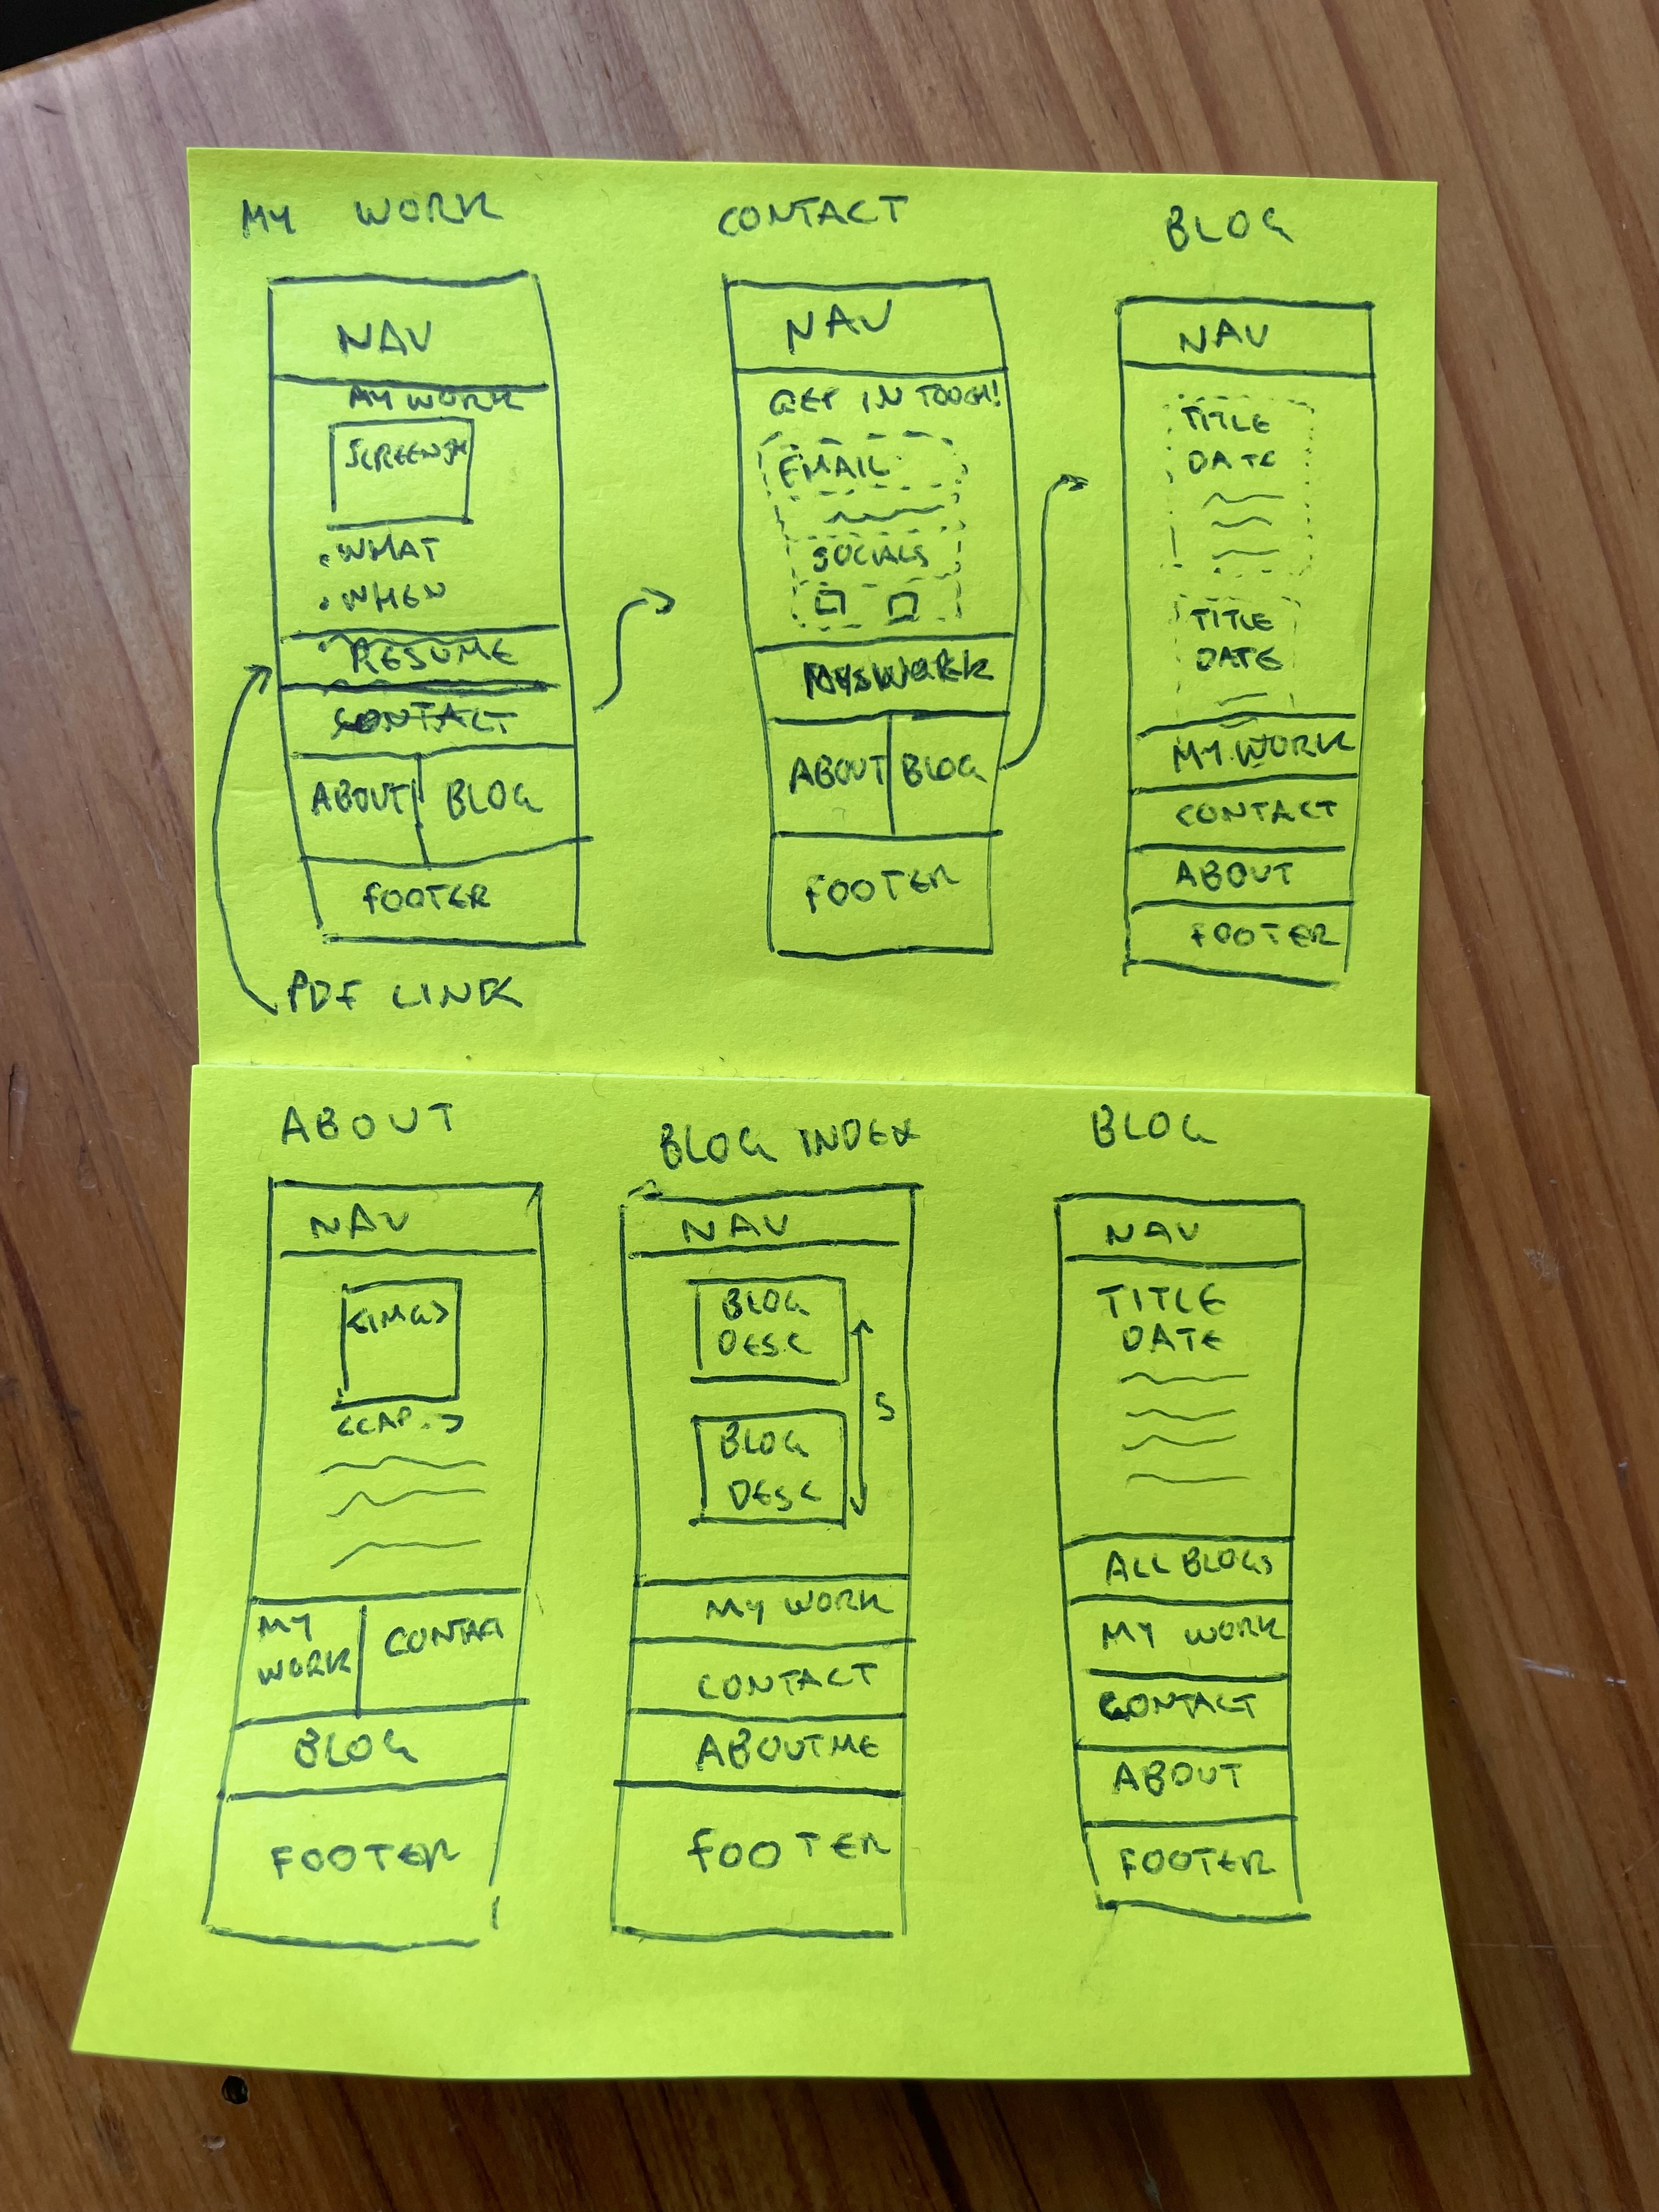 MY WORK
NAV
MY WORK
SCREENSH
. WHAT
. WHEN
RESUME
CONTACT
ABOUT
BLOG
FOOTER
PDF LINK
CONTACT
NAV
GET IN TOUCH!
EMAIL
SOCIALS
WORK
ABOUT
BLOG
FOOTER
BLOG
NAV
TITLE
DATE
TITLE
DATE
MY WORK
CONTACT
ABOUT
FOOTER
ABOUT
NAV
<IMG>
<CAP.>
MY
WORK
CONTACT
BLOG
FOOTER
BLOG INDEX
NAV
BLOG
DESC
BLOG
DESC
5
MY WORK
CONTACT
ABOUT ME
FOOTER
BLOG
NAV
TITLE
DATE
ALL BLOGS
MY WORK
CONTACT
ABOUT
FOOTER